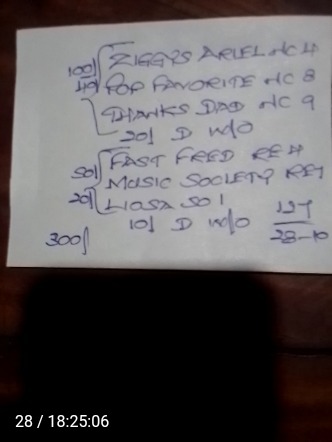 100/ ZIGGYS ARIEL NC 4
40/ POP FAVORITE NC 8
THANKS DAD NC 9
20/ D w/o
50/ FAST FRED RE 4
MUSIC SOCIETY RE 1
20/ LIOSA SO 1
10/ D w/o
127
28-10
300/
28 / 18:25:06